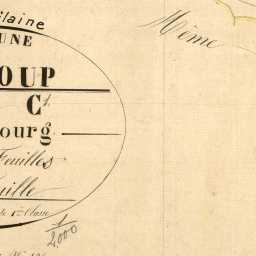 ilaine
UNE
OUP
Ct
ourg
Feuilles
uille
de 1re Classe
1/2000
Même